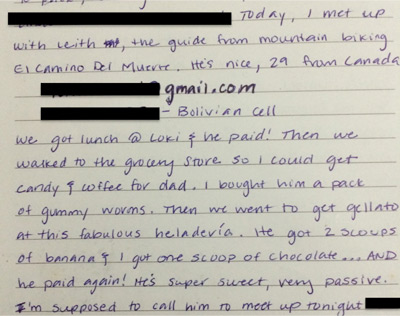 Today, I met up
with Leith, the guide from mountain biking
El Camino Del Muerte. He's nice, 29 from Canada
@gmail.com
- Bolivian cell
we got lunch @ Loki & he paid! Then we
walked to the grocery store so I could get
candy & coffee for dad. I bought him a pack
of gummy worms. Then we went to get gellato
at this fabulous heladería. He got 2 scoops
of banana & I got one scoop of chocolate... AND
he paid again! He's super sweet, very passive.
I'm supposed to call him to meet up tonight